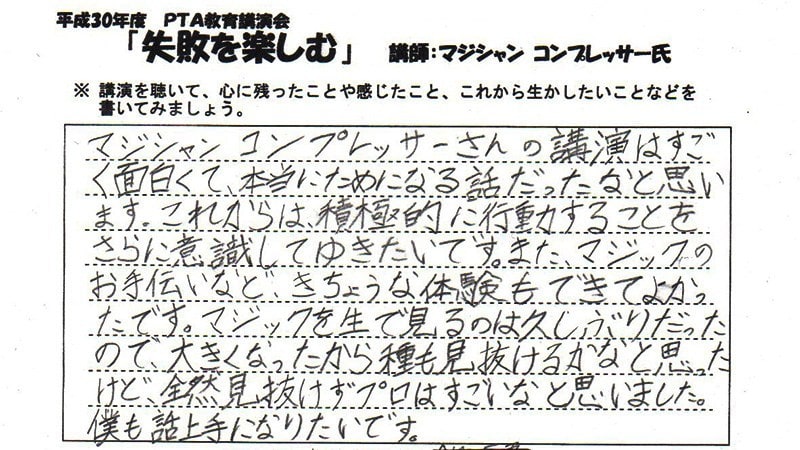 平成30年度 PTA教育講演会
「失敗を楽しむ」 講師:マジシャン コンプレッサー氏
※ 講演を聴いて、心に残ったことや感じたこと、これから生かしたいことなどを
書いてみましょう。
マジシャン コンプレッサーさんの講演はすご
く面白くて、本当にためになる話だったなと思い
ます。これからは、積極的に行動することを
さらに意識してゆきたいです。また、マジックの
お手伝いなど、きちょうな体験もできてよかっ
たです。マジックを生で見るのは久しぶりだった
ので、大きくなったから種も見抜けるかなと思った
けど、全然見抜けずプロはすごいなと思いました。
僕も話上手になりたいです。